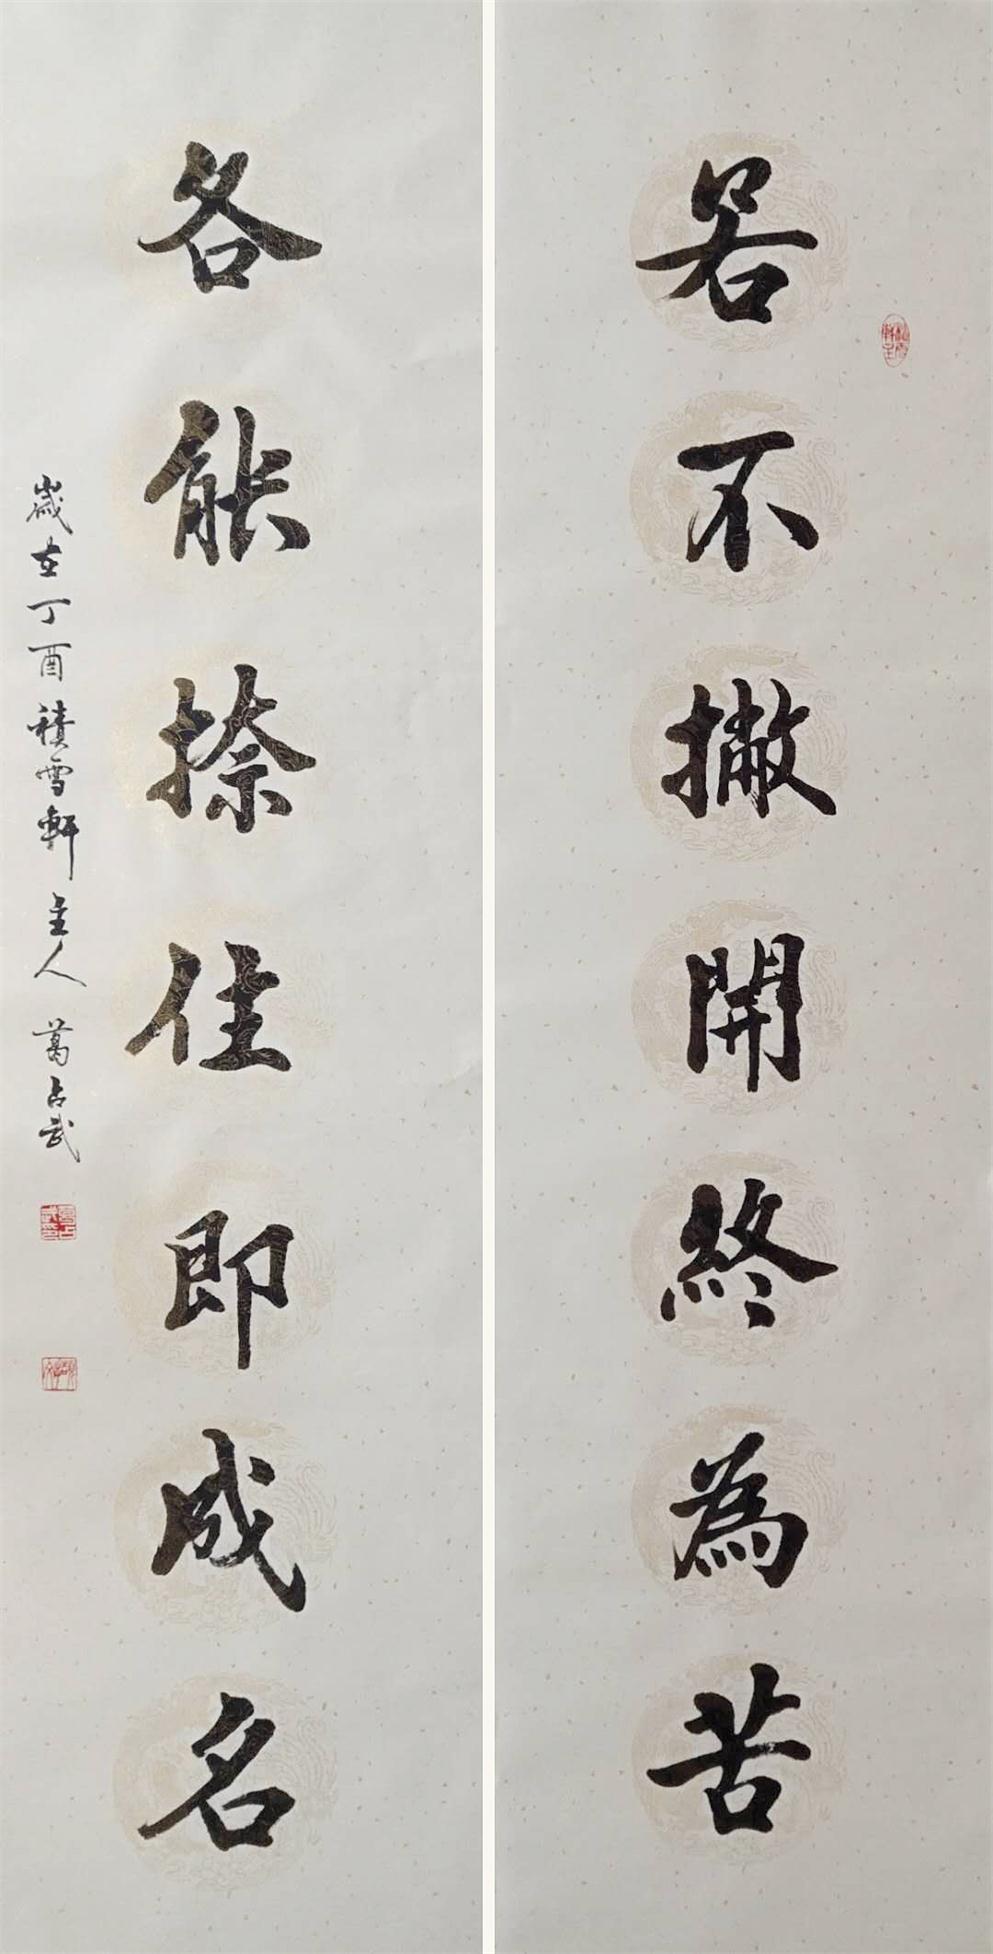 若不撇開終為苦
各能捺住即成名
歲在丁酉積雪軒主人 葛占武